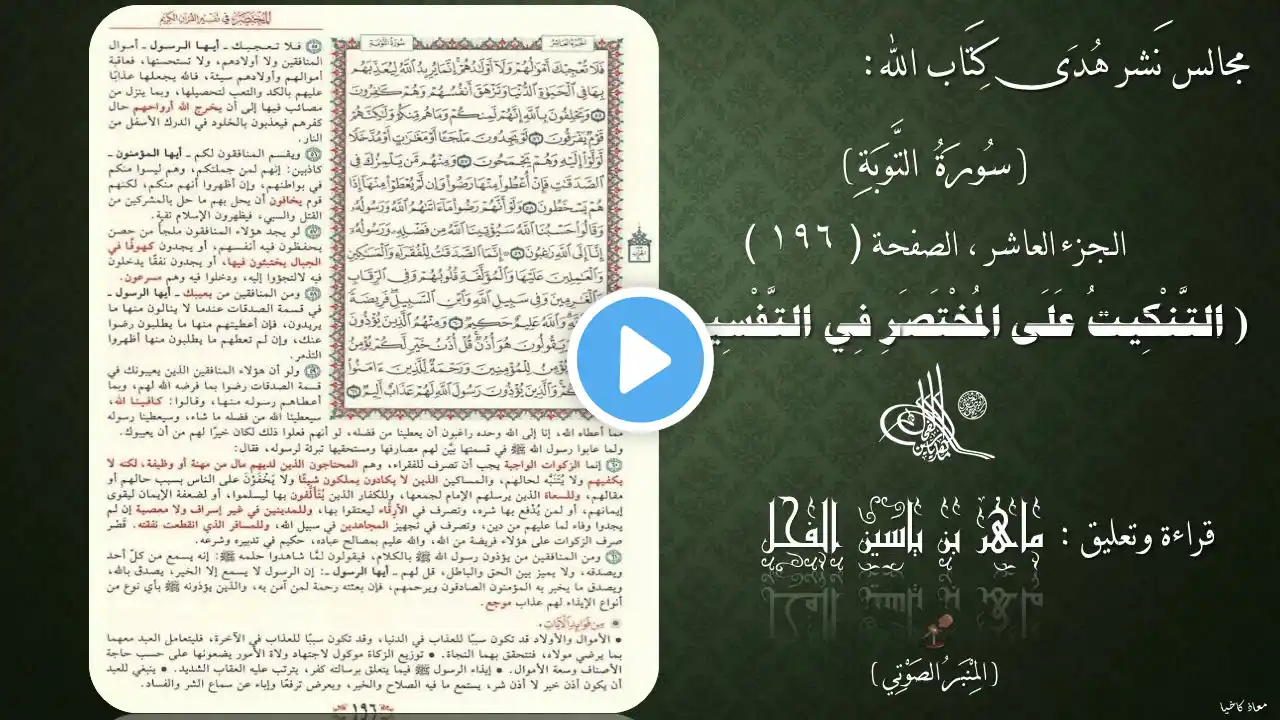 مجالس نَشر هُدَى كِتَاب الله:
(سُورَةُ التَّوبَةِ)
الجزء العاشر ، الصفحة ( ١٩٦ )
( التَّنْكِيتُ عَلَى المُخْتَصَرِ فِي التَّفْسِي
قراءة وتعليق : ماهر بن ياسين الفحل
(المِنْبَر الصَّوْتِي)
معاذ كاخيا
المختصر في تفسير القرآن الكريم
الجزء العاشر
سورة التوبة
فَلَا تُعْجِبْكَ أَمْوَالُهُمْ وَلَا أَوْلَادُهُمْ إِنَّمَا يُرِيدُ اللَّهُ لِيُعَذِّبَهُم
بِهَا فِي الْحَيَوٰةِ الدُّنْيَا وَتَزْهَقَ أَنفُسُهُمْ وَهُمْ كَٰفِرُونَ
۝٥٥ وَيَحْلِفُونَ بِاللَّهِ إِنَّهُمْ لَمِنكُمْ وَمَا هُم مِّنكُمْ وَلَٰكِنَّهُمْ
قَوْمٌ يَفْرَقُونَ ۝٥٦ لَوْ يَجِدُونَ مَلْجَـًٔا أَوْ مَغَٰرَٰتٍ أَوْ مُدَّخَلًا
لَّوَلَّوْا إِلَيْهِ وَهُمْ يَجْمَحُونَ ۝٥٧ وَمِنْهُم مَّن يَلْمِزُكَ فِي
الصَّدَقَٰتِ فَإِنْ أُعْطُوا مِنْهَا رَضُوا وَإِن لَّمْ يُعْطَوْا مِنْهَا إِذَا
هُمْ يَسْخَطُونَ ۝٥٨ وَلَوْ أَنَّهُمْ رَضُوا مَا ءَاتَىٰهُمُ اللَّهُ وَرَسُولُهُ
وَقَالُوا حَسْبُنَا اللَّهُ سَيُؤْتِينَا اللَّهُ مِن فَضْلِهِ وَرَسُولُهُ
إِنَّا إِلَى اللَّهِ رَٰغِبُونَ ۝٥٩ إِنَّمَا الصَّدَقَٰتُ لِلْفُقَرَاءِ وَالْمَسَٰكِينِ
وَالْعَٰمِلِينَ عَلَيْهَا وَالْمُؤَلَّفَةِ قُلُوبُهُمْ وَفِي الرِّقَابِ
وَالْغَٰرِمِينَ وَفِي سَبِيلِ اللَّهِ وَابْنِ السَّبِيلِ فَرِيضَةً
وَاللَّهُ عَلِيمٌ حَكِيمٌ ۝٦٠ وَمِنْهُمُ الَّذِينَ يُؤْذُونَ
يَقُولُونَ هُوَ أُذُنٌ قُلْ أُذُنُ خَيْرٍ لَّكُمْ يُؤْمِنُ
لِلْمُؤْمِنِينَ وَرَحْمَةٌ لِّلَّذِينَ ءَامَنُوا
وَالَّذِينَ يُؤْذُونَ رَسُولَ اللَّهِ لَهُمْ عَذَابٌ أَلِيمٌ ۝٦١
٥٥ فلا تعجبك ـ أيها الرسول ـ أموال
المنافقين ولا أولادهم، ولا تستحسنها، فعاقبة
أموالهم وأولادهم سيئة، فالله يجعلها عذابًا
عليهم بالكد والتعب لتحصيلها، وبما ينزل من
مصائب فيها إلى أن يخرج الله أرواحهم حال
كفرهم فيعذبون بالخلود في الدرك الأسفل من
النار.
٥٦ ويقسم المنافقون لكم ـ أيها المؤمنون ـ
كاذبين: إنهم لمن جملتكم، وهم ليسوا منكم
في بواطنهم، وإن أظهروا أنهم منكم، لكنهم
قوم يخافون أن يحل بهم ما حل بالمشركين من
القتل والسبي، فيظهرون الإسلام تقية.
٥٧ لو يجد هؤلاء المنافقون ملجأ من حصن
يحفظون فيه أنفسهم، أو يجدون كهوفًا في
الجبال يختبئون فيها، أو يجدون نفقًا يدخلون
فيه لالتجؤوا إليه، ودخلوا فيه وهم مسرعون.
٥٨ ومن المنافقين من يعيبك ـ أيها الرسول ـ
في قسمة الصدقات عندما لا ينالون منها ما
يريدون، فإن أعطيتهم منها ما يطلبون رضوا
عنك، وإن لم تعطهم ما يطلبون منها أظهروا
التذمر.
٥٩ ولو أن هؤلاء المنافقين الذين يعيبونك في
قسمة الصدقات رضوا بما فرضه الله لهم، وبما
أعطاهم رسوله منها، وقالوا: كافينا الله،
سيعطينا الله من فضله ما شاء، وسيعطينا رسوله
مما أعطاه الله، إنا إلى الله وحده راغبون أن يعطينا من فضله، لو أنهم فعلوا ذلك لكان خيرًا لهم من أن يعيبوك.
ولما عابوا رسول الله ﷺ في قسمتها بيَّن لهم مصارفها ومستحقيها تبرئة لرسوله، فقال:
٦٠ إنما الزكوات الواجبة يجب أن تصرف للفقراء، وهم المحتاجون الذين لديهم مال من مهنة أو وظيفة، لكنه لا
يكفيهم ولا يُتَنبَّه لحالهم، والمساكين الذين لا يكادون يملكون شيئًا ولا يَخْفَوْن على الناس بسبب حالهم أو
مقالهم، وللسعاة الذين يرسلهم الإمام لجمعها، وللكفار الذين يُتَألَّفون بها ليسلموا، أو لضعفة الإيمان ليقوى
إيمانهم، أو لمن يُدْفع بها شره، وتصرف في الأرِقَّاء ليعتقوا بها، وللمدينين في غير إسراف ولا معصية إن لم
يجدوا وفاء لما عليهم من دين، وتصرف في تجهيز المجاهدين في سبيل الله، وللمسافر الذي انقطعت نفقته. قَصْر
صرف الزكوات على هؤلاء فريضة من الله، والله عليم بمصالح عباده، حكيم في تدبيره وشرعه.
٦١ ومن المنافقين من يؤذون رسول الله ﷺ بالكلام، فيقولون لمَّا شاهدوا حلمه ﷺ: إنه يسمع من كل أحد
ويصدقه، ولا يميز بين الحق والباطل، قل لهم ـ أيها الرسول ـ: إن الرسول لا يسمع إلا الخير، يصدق بالله،
ويصدق ما يخبر به المؤمنون الصادقون ويرحمهم، فإن بعثته رحمة لمن آمن به، والذين يؤذونه ﷺ بأي نوع من
أنواع الإيذاء لهم عذاب موجع.
مِن فَوَائِدِ الآيَاتِ.
• الأموال والأولاد قد تكون سببًا للعذاب في الدنيا، وقد تكون سببًا للعذاب في الآخرة، فليتعامل العبد معهما
بما يرضي مولاه، فتتحقق بهما النجاة. • توزيع الزكاة موكول لاجتهاد ولاة الأمور يضعونها على حسب حاجة
الأصناف وسعة الأموال. • إيذاء الرسول ﷺ فيما يتعلق برسالته كفر، يترتب عليه العقاب الشديد. • ينبغي للعبد
أن يكون أذن خير لا أذن شر، يستمع ما فيه الصلاح والخير، ويعرض ترفعًا وإباء عن سماع الشر والفساد.
١٩٦